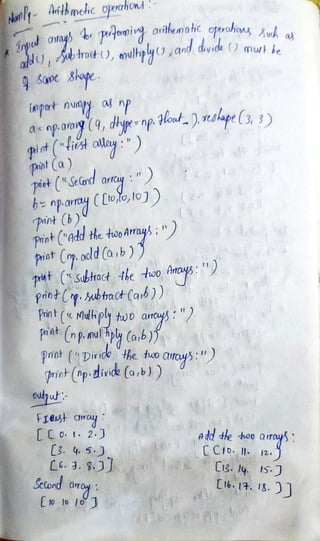 NumPy - Arithmetic operations :-
* Input arrays for performing arithmetic operations such as
add(), Subtract(), multiply(), and divide() must be
of same shape.
import numpy as np
a = np.arang(9, dtype=np.float_).reshape(3, 3)
print("first array:")
print(a)
print("Second array:")
b = np.array([10,10,10])
print(b)
print("Add the two Arrays:")
print(np.add(a,b))
print("Subtract the two Arrays:")
print(np.subtract(a,b))
Print("Multiply two arrays:")
Print(np.multiply(a,b))
print("Divide the two arrays:")
print(np.divide(a,b))
output:-
First array:
[[0. 1. 2.]
[3. 4. 5.]
[6. 7. 8.]]
Second array:
[10 10 10]
Add the two arrays:
[[10. 11. 12.]
[13. 14. 15.]
[16. 17. 18.]]